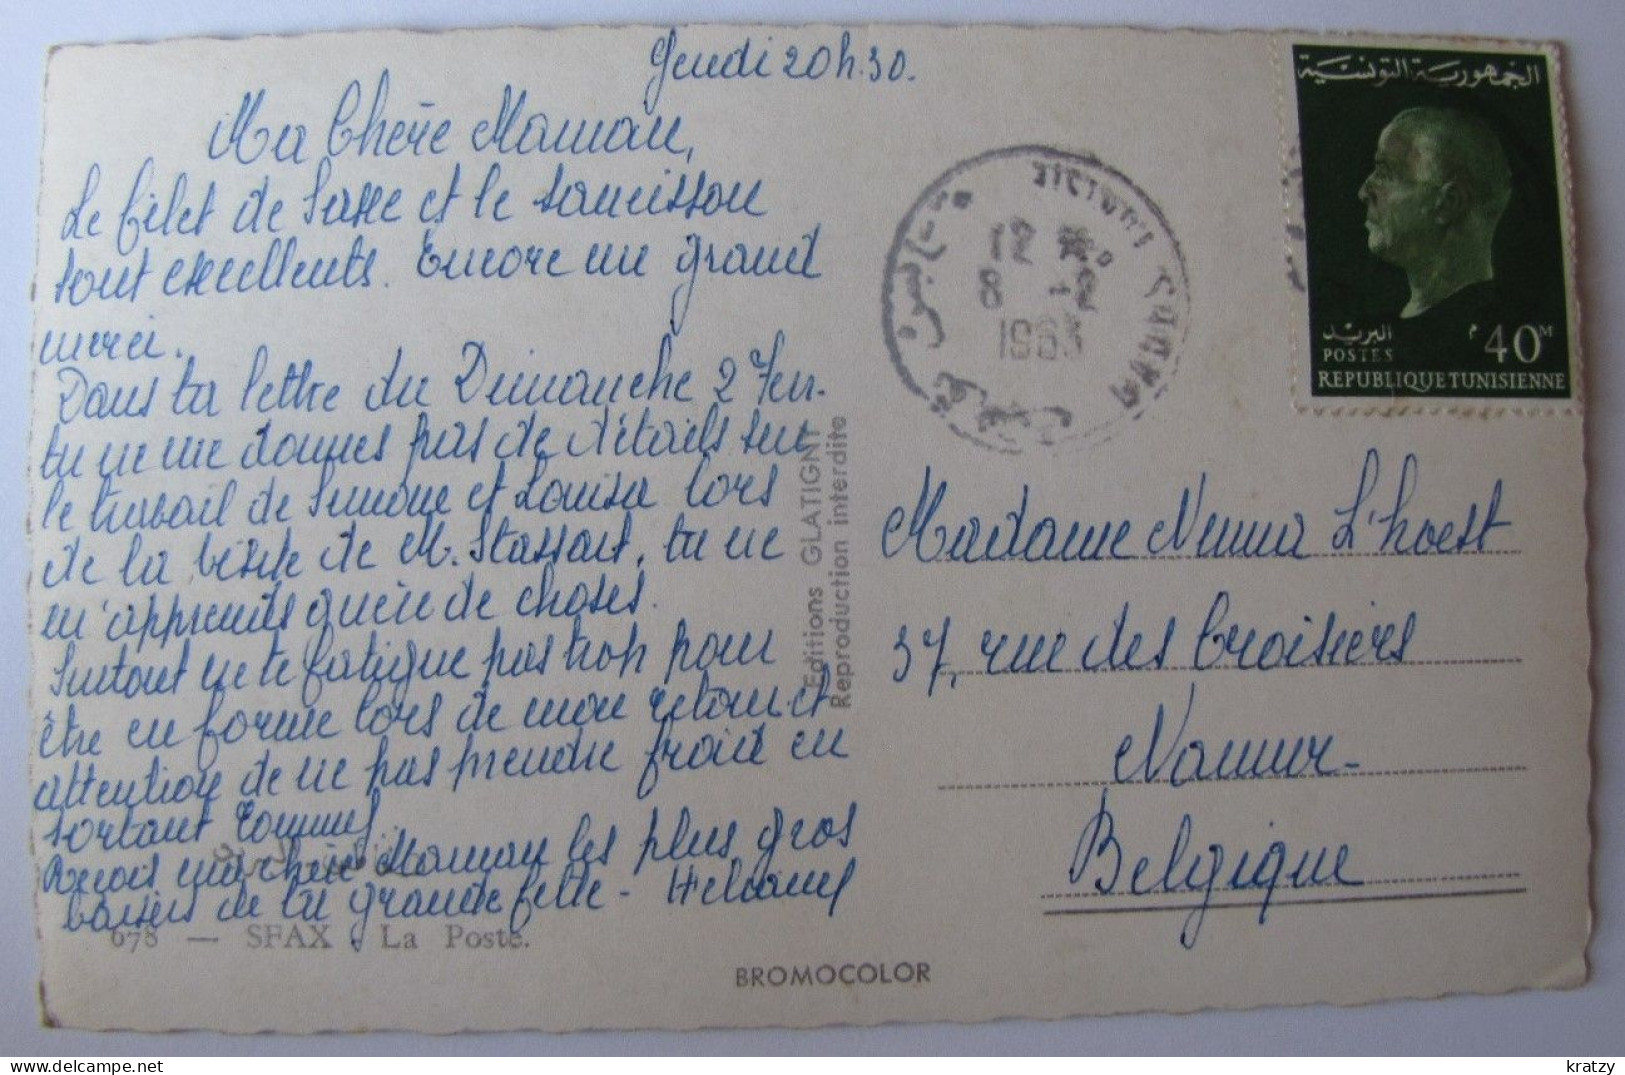 Jeudi 20h.30.
Ma Chère Maman,
Le filet de Saxe et le saucisson
sont excellents. Encore un grand
merci.
Dans ta lettre du Dimanche 2 Fév.
tu ne me donnes pas de détails sur
le travail de Simone et Louisa lors
de la visite de M. Stassart, tu ne
m'apprends guère de choses.
Surtout ne te fatigue pas trop pour
être en forme lors de mon retour et
attention de ne pas prendre froid en
sortant
Reçois ma chère Maman les plus gros
baisers de ta grande fille -
678 — SFAX . La Poste.
Editions GLATIGNY
Reproduction interdite
BROMOCOLOR
12
8
196
الجمهورية التونسية
البريد
POSTES
40M
REPUBLIQUE TUNISIENNE
Madame L'hoest
37, rue des Croisiers
Namur-
Belgique
kratzy